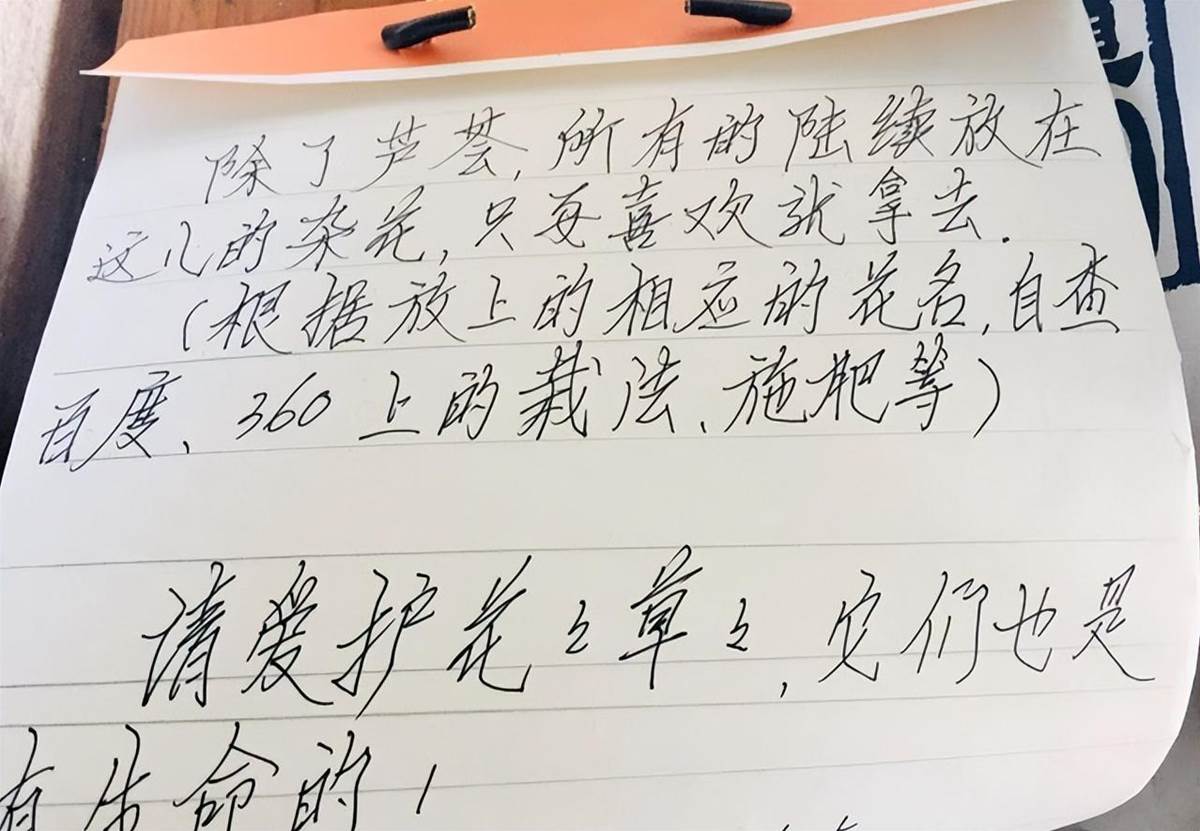 除了芦荟,所有的陆续放在
这儿的杂花,只要喜欢就拿去.
(根据放上的相应的花名,自查
百度、360上的栽法、施肥等)
请爱护花々草々,它们也是
有生命的!